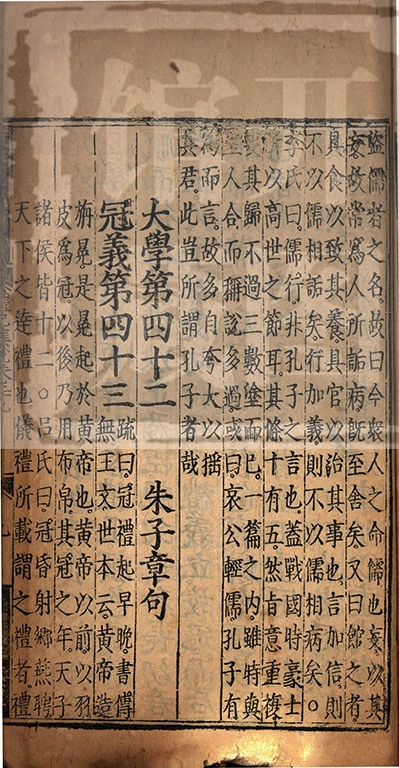 盜儒者之名。故曰今衆人之命儒也妄。以其
妄。故常爲人所詬病。旣至舍矣。又曰館之者。
具食以致其養。具官以治其事也。言加信。則
不以儒相詬矣。行加義。則不以儒相病矣。○
李氏曰。儒行非孔子之言也。蓋戰國時豪士
所以高世之節耳。其條十有五。然旨意重複。
要其歸不過三數塗而已。一篇之内。雖時與
聖人合。而稱說多過。或曰。哀公輕儒。孔子有
爲而言。故多自夸大以搖
其君。此豈所謂孔子者哉
大學第四十二 朱子章句
冠義第四十三 疏曰。冠禮起早晚。書傳
無正文。世本云。黄帝造
旃冕。是冕起於黄帝也。黄帝以前。以羽
皮爲冠。以後乃用布帛。其冠之年。天子
諸侯皆十二。○吕氏曰。冠昏射鄉燕聘。
天下之達禮也。儀禮所載謂之禮者。禮